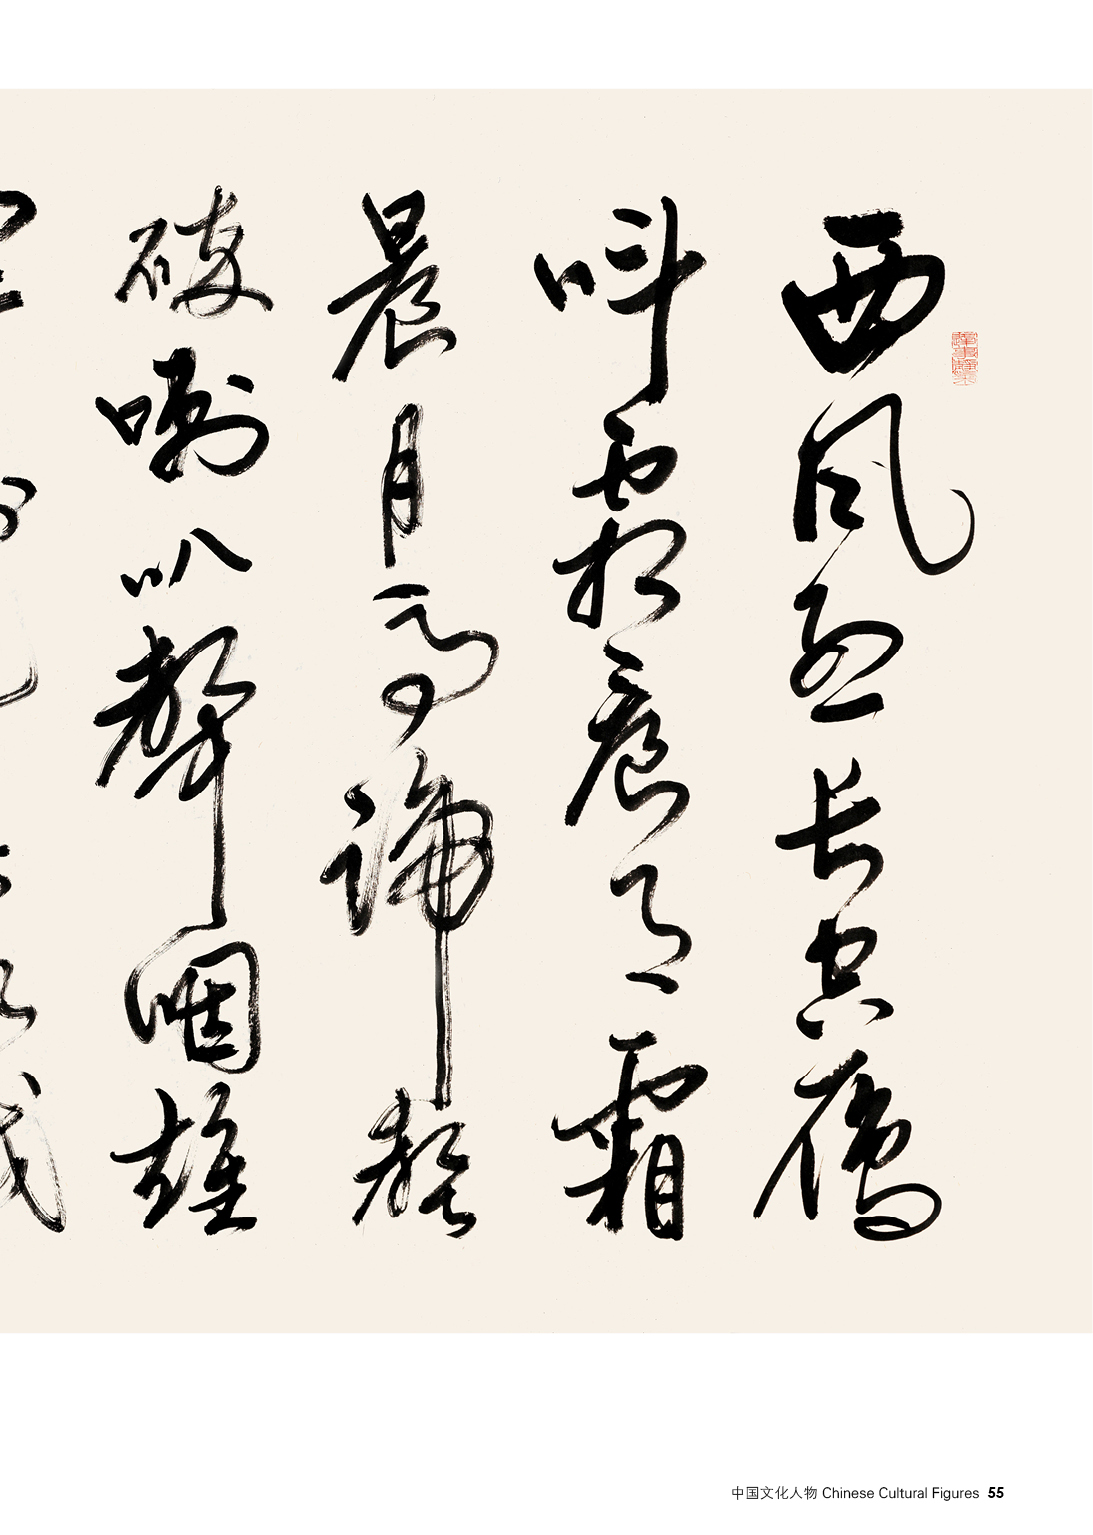 西风烈长空雁
叫霜晨月霜
晨月马蹄聲
碎喇叭聲咽雄
中国文化人物 Chinese Cultural Figures 55